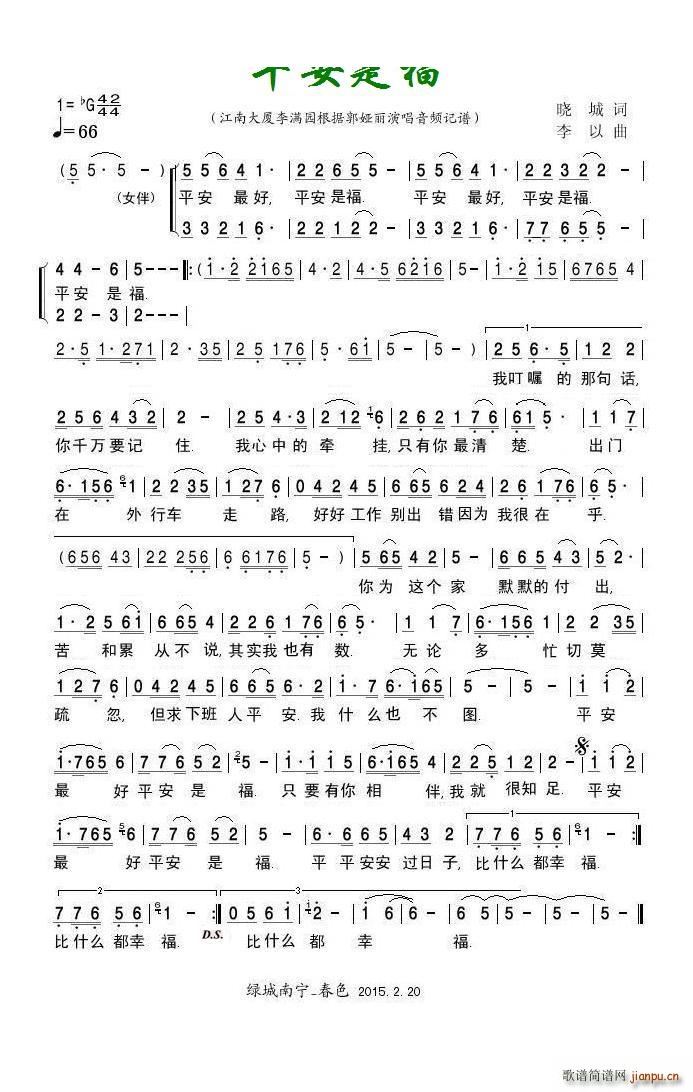 平安是福
1=♭G 42/44
♩=66
（江南大厦李满园根据郭娅丽演唱音频记谱）
晓 城 词
李 以 曲
(5 5· 5 -) 5 5 6 4 1 · | 2 2 1 2 2 - | 5 5 6 4 1 · | 2 2 3 2 2 - |
（女伴） 平安 最好, 平安是福. 平安 最好, 平安是福.
3 3 2 1 6 · | 2 2 1 2 2 - | 3 3 2 1 6 · | 7 7 6 5 5 - |
4 4 - 6 | 5 - - - :(1 · 2 2 1 6 5 | 4 · 2 4 · 5 | 6 2 1 6 5 - | 1 · 2 1 5 | 6 7 6 5 4
平安 是 福.
2 2 - 3 | 2 - - - |
2 · 5 1 · 2 7 1 | 2 · 3 5 | 2 5 1 7 6 | 5 · 6 1 | 5 - | 5 - ) | 2 5 6 · 5 | 1 2 2
我叮嘱 的 那句 话,
2 5 6 4 3 2 | 2 - | 2 5 4 · 3 | 2 1 2 6 | 2 6 2 1 7 6 | 6 1 5 · | 1 1 7
你千万要记 住. 我心中的 牵 挂,只有你最清 楚. 出门
6 · 1 5 6 6 1 | 2 2 3 5 | 1 2 7 · | 0 4 2 4 5 | 6 6 5 6 5 2 | 2 6 1 7 6 | 6 5 ·
在 外 行车 走 路, 好好工作 别出 错因为 我很 在 乎.
(6 5 6 4 3 | 2 2 2 5 6 | 6 6 1 7 6 | 5 - ) | 5 6 5 4 2 | 5 - | 6 6 5 4 3 | 5 2 ·
你为 这个 家 默默的 付 出,
1 · 2 5 6 1 | 6 6 5 4 5 | 2 2 1 7 6 | 6 5 · | 1 2 2 | 6 · 1 5 6 | 2 2 2
苦 和累 从不 说,其实我 也有 数. 无论 多 忙切莫
1 2 7 | 0 4 2 4 5 | 6 6 5 6 5 | 2 1 7 6 | 6 · 1 6 5 | 5 - | 5 - | 1 1 2
疏 忽, 但求下班 人平 安.我 什么也 不 图. 平安
1 · 7 6 5 6 | 7 7 6 5 2 | 5 - | 5 1 1 6 5 | 6 · 1 6 5 4 | 2 2 5 | 6 5 2 | 5 - | 1 1 2
最 好平安 是 福. 只要有你 相 伴,我就 很知 足. 平安
1 · 7 6 5 6 | 7 7 6 5 2 | 5 - | 6 · 6 5 6 | 4 3 2 | 7 7 6 5 6 | 1 - :||
最 好平安 是 福. 平 平安安 过日 子, 比什么都幸 福.
7 7 6 5 6 | 1 - :|| 0 5 6 1 | 2 - | 1 6 | 6 5 | 5 - | 5 - ||
D.S.
比什么 都幸 福. 比什么 都 幸 福.
绿城南宁_春色 2015.2.20
歌谱简谱网
jianpu.cn